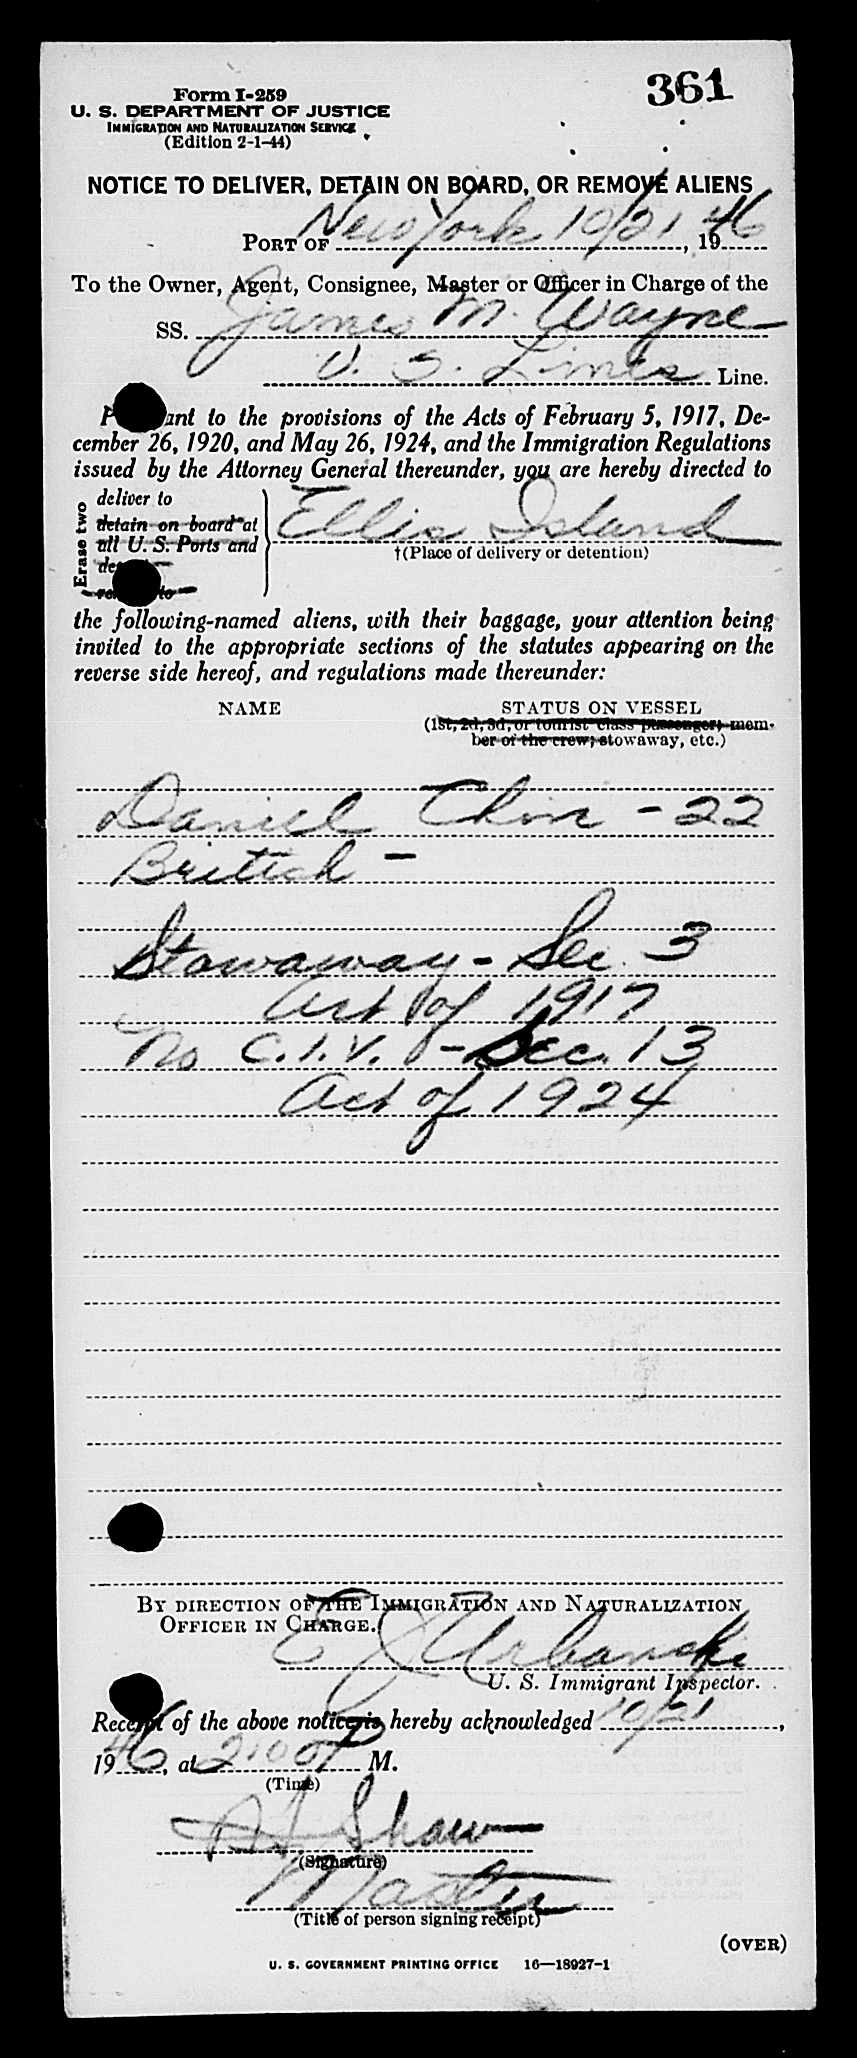 361
Form I-259
U. S. DEPARTMENT OF JUSTICE
IMMIGRATION AND NATURALIZATION SERVICE
(Edition 2-1-44)
NOTICE TO DELIVER, DETAIN ON BOARD, OR REMOVE ALIENS
PORT OF New York 10/21, 1946
To the Owner, Agent, Consignee, Master or Officer in Charge of the
SS. James M. Wayne
U. S. Lines Line.
to the provisions of the Acts of February 5, 1917, De-
cember 26, 1920, and May 26, 1924, and the Immigration Regulations
issued by the Attorney General thereunder, you are hereby directed to
Erase two
deliver to
detain on board at
all U. S. Ports and
Ellis Island
†(Place of delivery or detention)
the following-named aliens, with their baggage, your attention being
invited to the appropriate sections of the statutes appearing on the
reverse side hereof, and regulations made thereunder:
NAME STATUS ON VESSEL
(1st, 2d, 3d, or tourist class passenger; mem-
ber of the crew; stowaway, etc.)
Daniel Chin - 22
British -
Stowaway - Sec. 3
Act of 1917
No C.I.V. - Sec. 13
Act of 1924
BY DIRECTION OF THE IMMIGRATION AND NATURALIZATION
OFFICER IN CHARGE.
E J Urbanski
U. S. Immigrant Inspector.
Receipt of the above notice is hereby acknowledged 10/21,
1946, at 2:00 P M.
(Time)
Shaw
(Signature)
Master
(Title of person signing receipt)
(OVER)
U. S. GOVERNMENT PRINTING OFFICE 16—18927-1